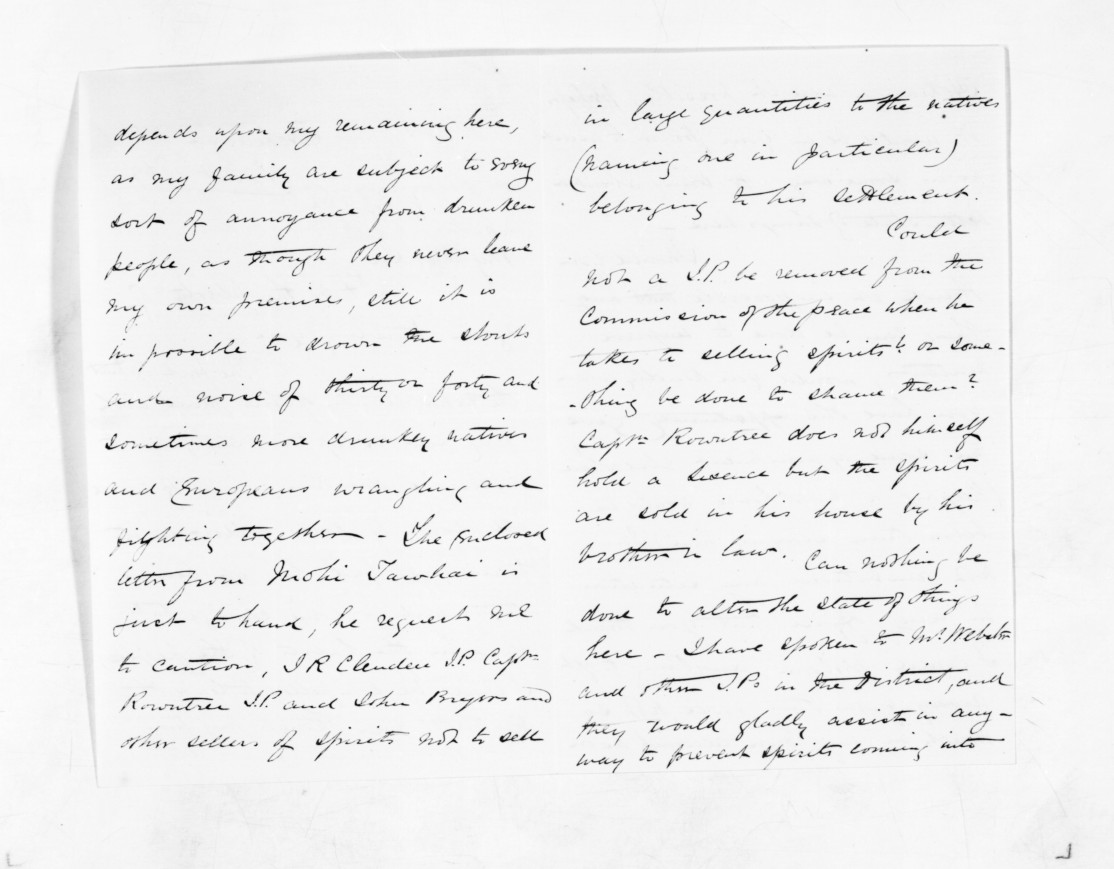 depends upon my remaining here,
as my family are subject to every
sort of annoyance from drunken
people, as though they never leave
my own premises, still it is
impossible to drown the shouts
and noise of thirty or forty and
sometimes more drunken natives
and Europeans wrangling and
fighting together - The enclosed
letter from Mohi Tawhai is
just to hand, he requests me
to caution, J R Clendon J.P. Captn
Rowntree J.P. and John Bryers and
other sellers of spirits not to sell
in large quantities to the natives
(naming one in particular)
belonging to his settlement.
Could
not a J.P. be removed from the
Commission of the peace when he
takes to selling spirits? or some-
-thing be done to shame them?
Captn Rowntree does not himself
hold a lisence but the spirits
are sold in his house by his
brother in law. Can nothing be
done to alter the state of things
here - I have spoken to Mr. Webster
and other J.Ps in the District, and
they would gladly assist in any-
way to prevent spirits coming into